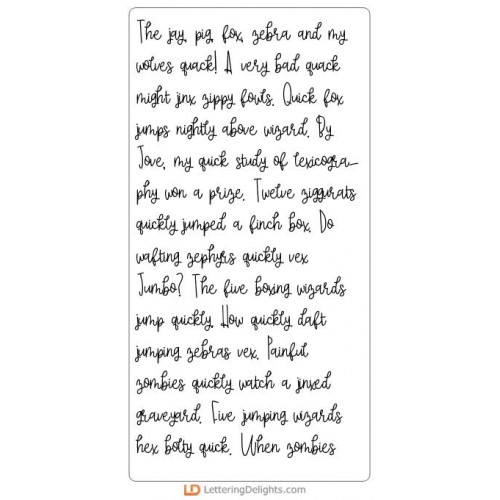 The jay, pig, fox, zebra and my
wolves quack! A very bad quack
might jinx zippy fowls. Quick fox
jumps nightly above wizard. By
Jove, my quick study of lexicogra-
phy won a prize. Twelve ziggurats
quickly jumped a finch box. Do
wafting zephyrs quickly vex
Jumbo? The five boxing wizards
jump quickly. How quickly daft
jumping zebras vex. Painful
zombies quickly watch a jinxed
graveyard. Five jumping wizards
hex bolty quick. When zombies
LD LetteringDelights.com